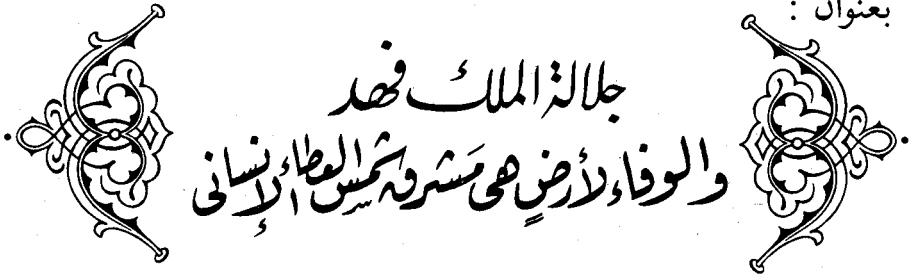 بعنوان :
جلالة الملك فهد
والوفاء لأرضٍ هى مَشرق شمس العطاء الإنسانى